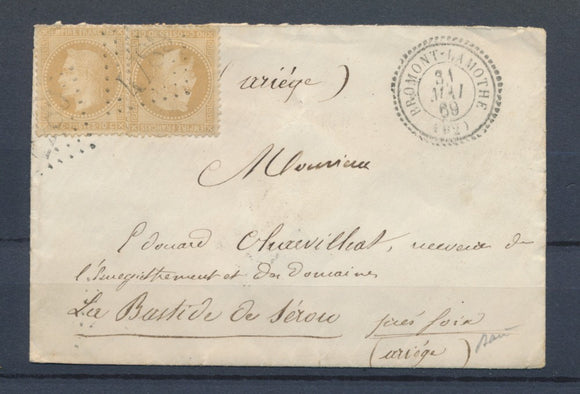 ariége )
BROMONT-LAMOTHE
31
MAI
69
(62)
Monsieur
Edouard Charvilhat, receveur de
l'Enregistrement et des domaines
La Bastide de Sérou près foix
(ariége)